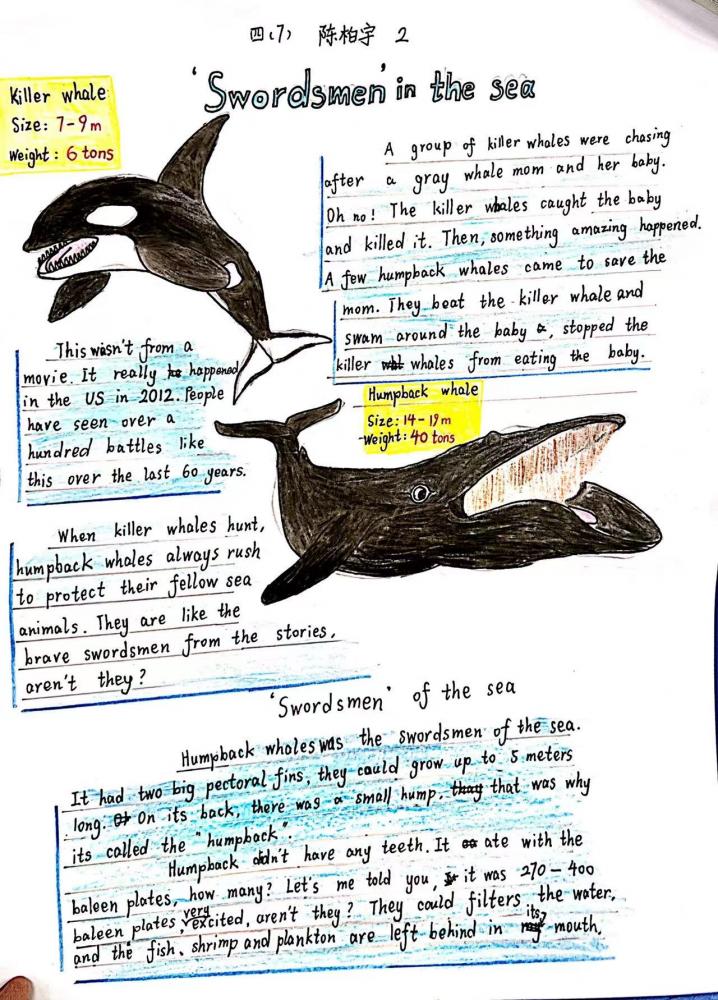 四(7) 陈柏宇 2
'Swordsmen' in the sea
Killer whale
Size: 7-9m
Weight: 6 tons
A group of killer whales were chasing
after a gray whale mom and her baby.
Oh no! The killer whales caught the baby
and killed it. Then, something amazing happened.
A few humpback whales came to save the
mom. They beat the killer whale and
swam around the baby, stopped the
killer whales from eating the baby.
This wasn't from a
movie. It really happened
in the US in 2012. People
have seen over a
hundred battles like
this over the last 60 years.
Humpback whale
Size: 14-19m
Weight: 40 tons
When killer whales hunt,
humpback whales always rush
to protect their fellow sea
animals. They are like the
brave swordsmen from the stories,
aren't they?
'Swordsmen' of the sea
Humpback whales was the swordsmen of the sea.
It had two big pectoral fins, they could grow up to 5 meters
long. On its back, there was a small hump. that was why
its called the "humpback".
Humpback didn't have any teeth. It ate with the
baleen plates, how many? Let's me told you, it was 270-400
baleen plates very excited, aren't they? They could filters the water,
and the fish, shrimp and plankton are left behind in its mouth.